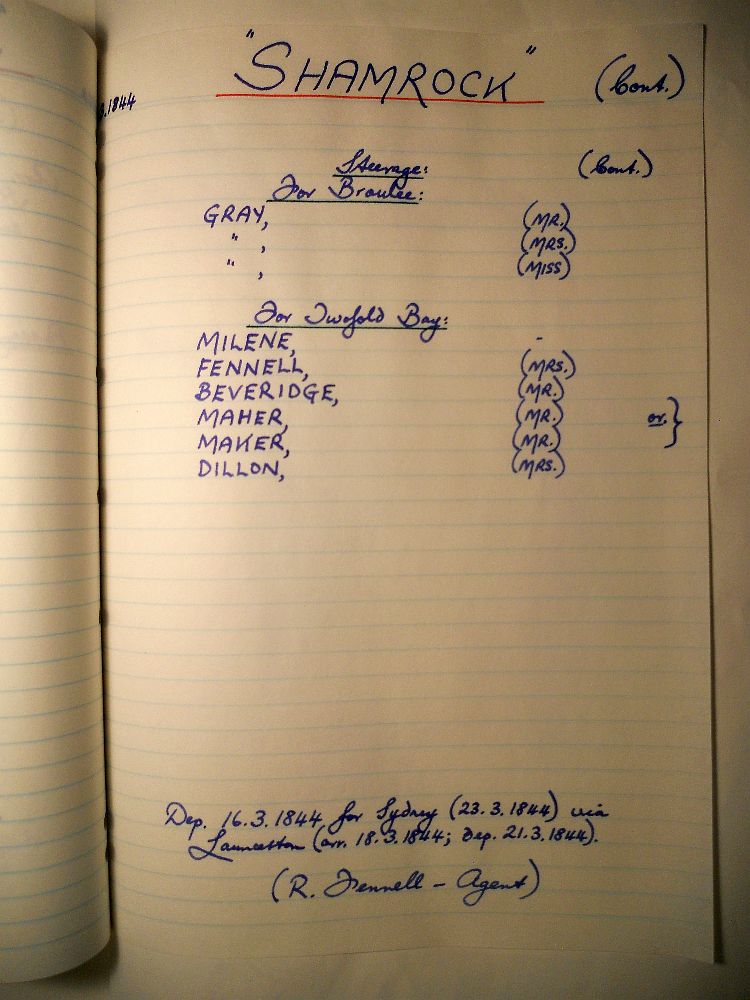 "SHAMROCK" (Cont.)
.1844
Steerage: (Cont.)
For Broulee:
GRAY, (MR.)
" , (MRS.)
" , (MISS)
For Twofold Bay:
MILENE, -
FENNELL, (MRS.)
BEVERIDGE, (MR.)
MAHER, (MR.) or }
MAKER, (MR.)
DILLON, (MRS.)
Dep. 16.3.1844 for Sydney (23.3.1844) via
Launceston (arr. 18.3.1844; Dep. 21.3.1844).
(R. Fennell - Agent)